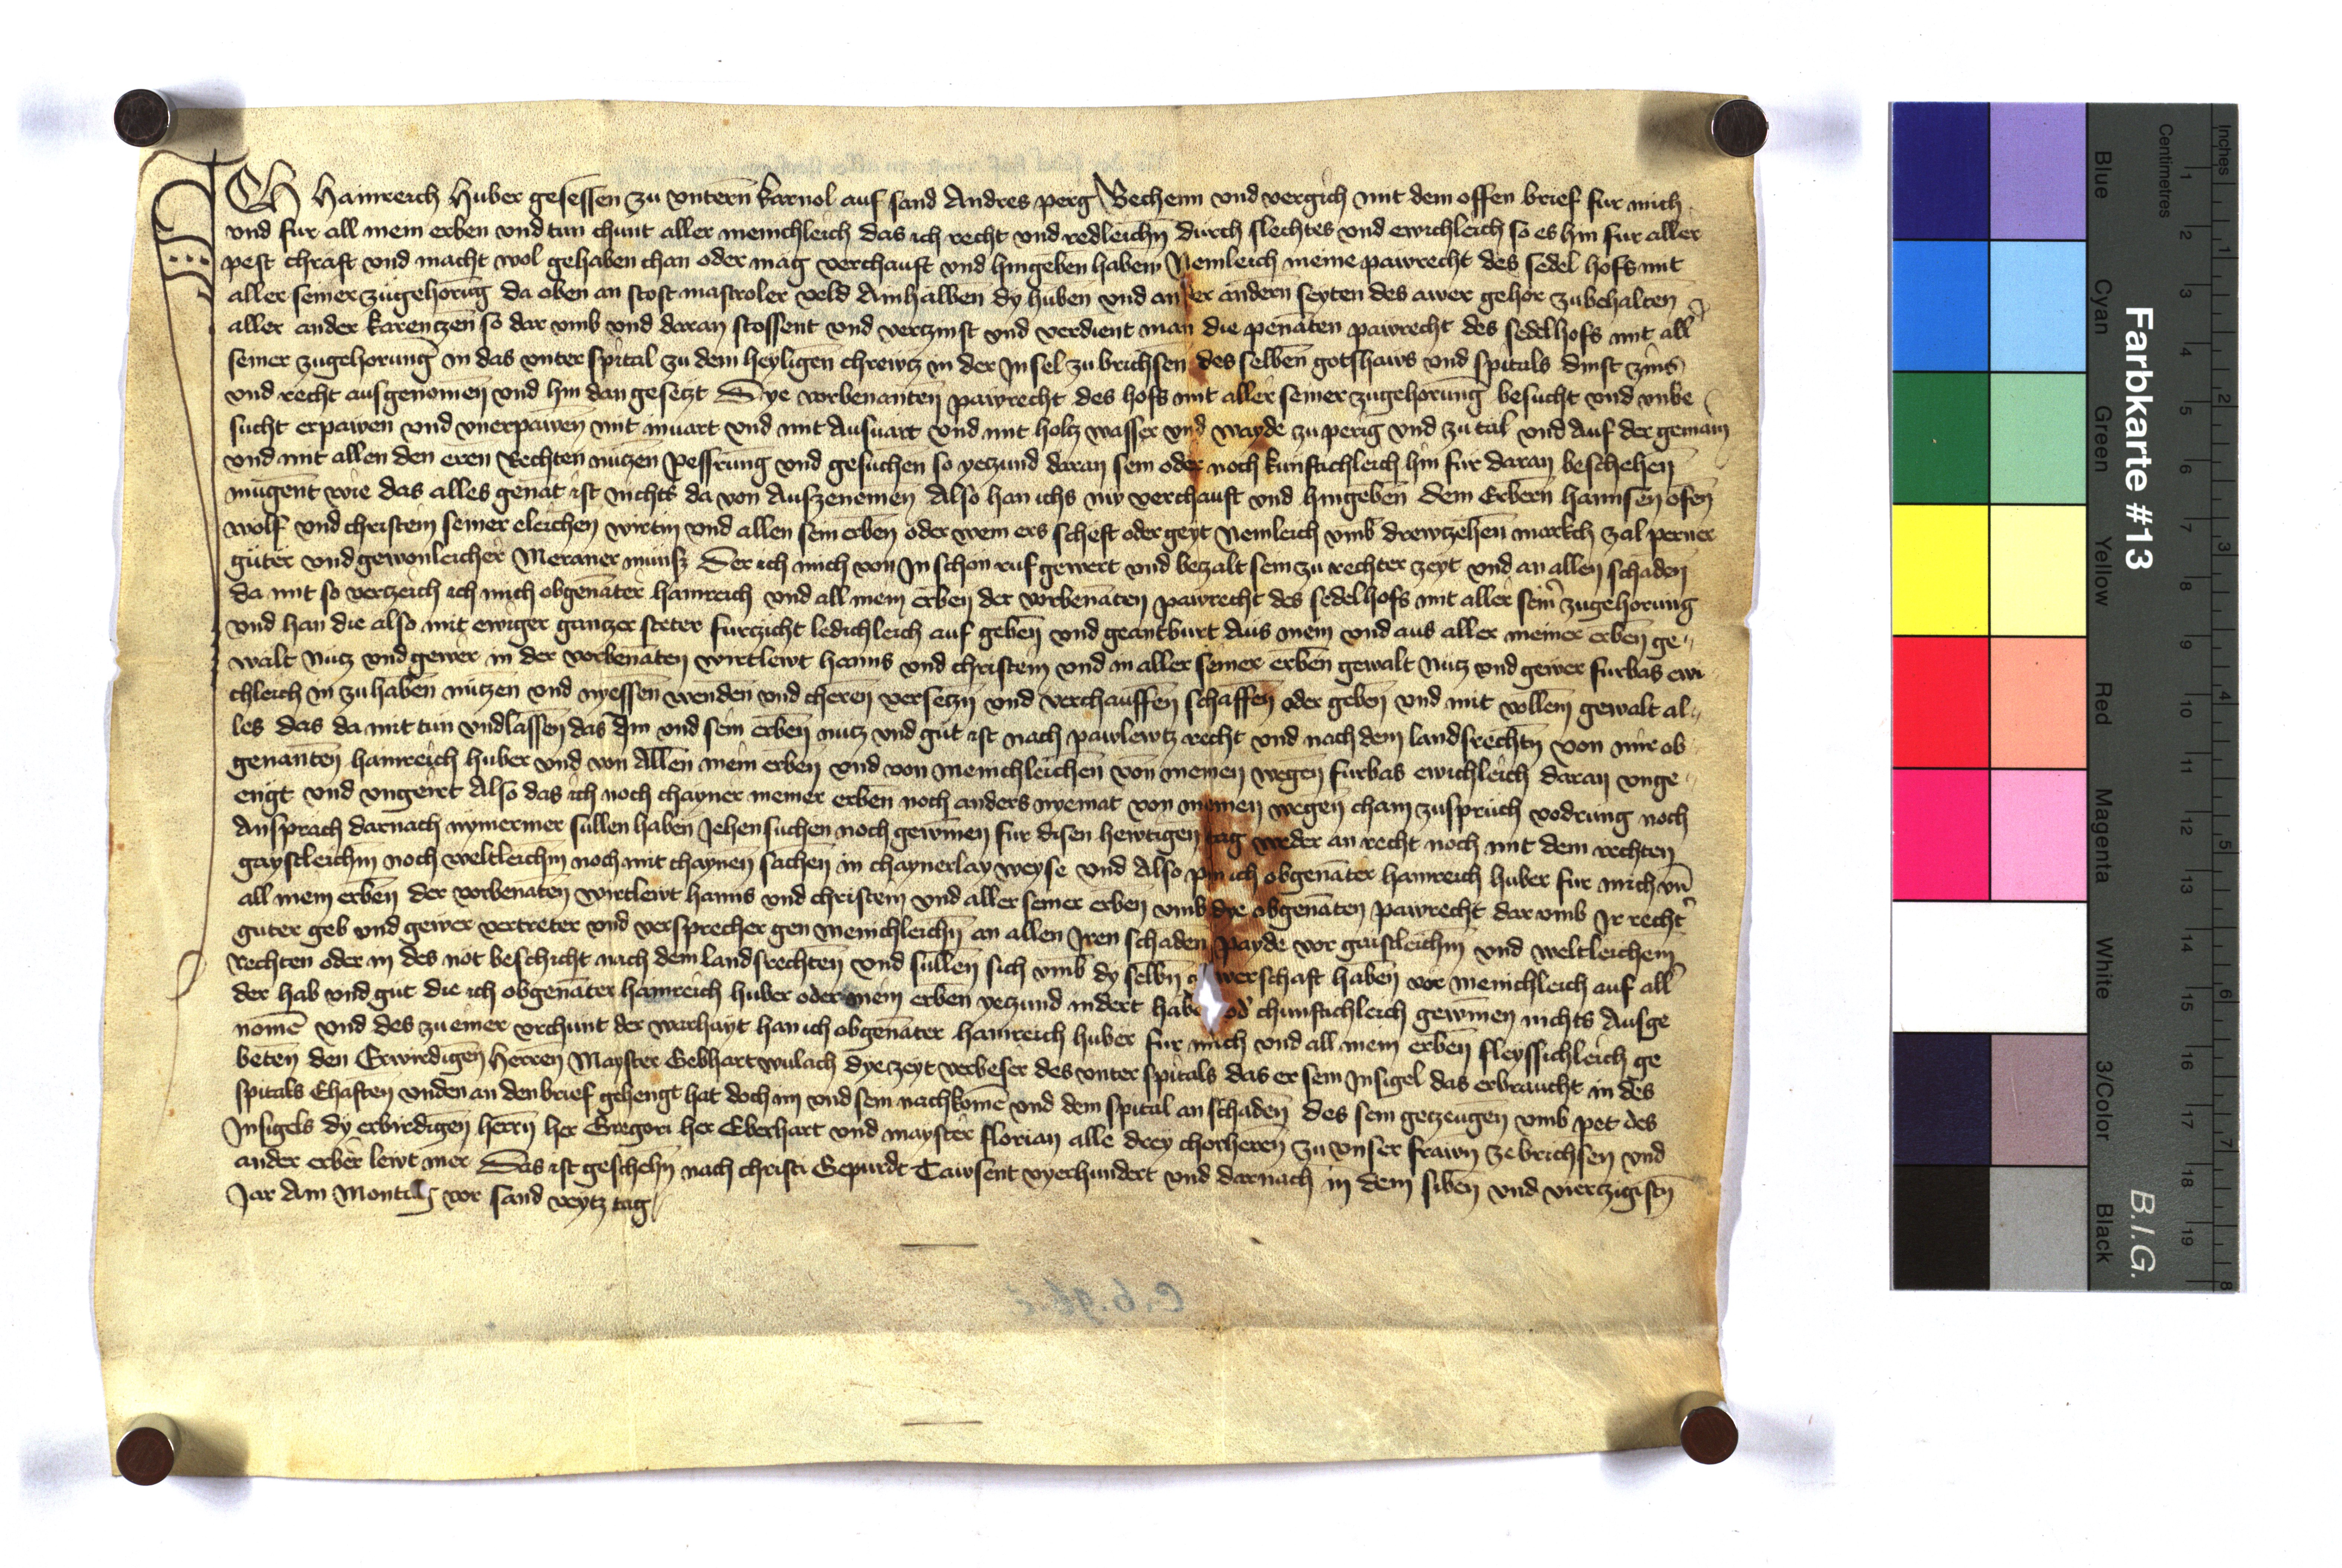 ICh Hainreich Huber gesessen zu vntern karnol auf sand Andres perg Bechenn vnd vergich mit dem offen brief fur mich
vnd fur all mein erben vnd tun chunt aller meinchleich das ich recht vnd redleichn durch slechtes vnd ewichleich so es hin fur aller
pest chraft vnd macht wol gehaben chan oder mag verchauft vnd hingeben haben Nemleich meine pawrecht des sedel hofs mit
aller seiner zugehorug da oben an stost mastroler veld Ainhalben dy huben vnd an der andern seyten des awer gehor zubehalten
aller ander karentzen so dar vmb vnd daran stossent vnd vertzinst vnd verdient man die penaten pawrecht des sedelhofs mit all
seiner zugehorung in das vnter spital zu dem heyligen chrewtz in der Insel zu brichsen des selben gotshaws vnd spitals dinst zins
vnd recht ausgenomen vnd hin dan gesetzt Dye vorbenanten pawrecht des hofs mit aller seiner zugehorung besucht vnd vnbe
sucht erpawen vnd vnerpawen mit invart vnd mit Ausvart vnd mit holtz wasser vnd wayde zu perig vnd zu tal vnd Auf der gemain
vnd mit allen den eren Rechten nutzen pessrung vnd gesuchen so yetzund daran sein oder noch kunftichleich hin fur daran beschehen
mugent wie das alles genat ist nichts da von Auszenemen Also han ichs nw verchauft vnd hingeben dem Erbern hannsen ofen
wolf vnd christein seiner eleichen wirtin vnd allen sein erben oder wem ers scheft oder geyt Nemleich vmb drewtzehen markch zal perner
guter vnd gewonleicher Meraner munss Der ich mich von In schon ruf gewert vnd betzalt sein zu rechter zeyt vnd an allen schaden
da mit so vertzeich ich mich obgenater hainreich vnd all mein erben der vorbenaten pawrecht des sedelhofs mit aller seinr zugehorung
vnd han die also mit ewiger gantzer steter furtzicht ledichleich auf geben vnd geantburt Aus mein vnd aus aller meiner erben ge
walt Nutz vnd gewer in der vorbenaten wirtlewt hanns vnd christein vnd in aller seiner erben gewalt Nutz vnd gewer furbas ewi
chleich in zu haben nutzen vnd nyessen wenden vnd cheren versetzn vnd verchauffen schaffen oder geben vnd mit vollem gewalt al
les das da mit tun vnd lassen das Im vnd sein erben nutz vnd gut ist nach pawlewtz recht vnd nach dem landsrechtn von mir ob
genanten hainreich huber vnd von Allen mein erben vnd von meinchleichen von meinen wegen furbas ewichleich daran vnge
engt vnd vngeirt Also das ich noch chayner meiner erben noch anders nyemat von meinen wegen chain zuspruch vodrung noch
Ansprach darnach nymermer sullen haben Jehen suchen noch gewinnen fur disen hewtigen tag weder an recht noch mit dem rechten
gaystleichm noch weltleichm noch mit chaynen sachen in chaynerlay weyse vnd Also pin ich obgenater hainreich huber fur mich vn
all mein erben der vorbenaten wirtlewt hanns vnd christein vnd aller seiner erben vmb dye obgenaten pawrecht dar vmb Ir recht
guter geb vnd gewer vertreter vnd versprecher gen meinchleichn an allen Iren schaden payde vor gaistleichm vnd weltleichem
Rechten oder in des not beschicht nach dem landsrechten vnd sullen sich vmb dy selbn werschaft haben vor meinchleich auf all
der hab vnd gut die ich obgenater hainreich huber oder mein erben yetzund indert habe od chunftichleich gewinen nichts Ausge
nome vnd des zu einer vrchunt der warhayt han ich obgenater hainreich huber fur mich vnd all mein erben fleyssichleich ge
beten den Erwirdigen Herren Mayster Gebhart wulach dye zeyt verbeser des vnter spitals das er sein Insigel das er braucht in des
spitals Ehaften vnden an den brief gehengt hat doch im vnd sein nachkome vnd dem spital an schaden des sein getzeugen vmb pet des
Insigels dy erbirdigen herrn her Gregori her Eberhart vnd mayster florian alle drey chorherren zu vnser frawn ze brichsen vnd
ander erber lewt mer Das ist geschehn nach christi Gepurdt Tawsent vyerhundert vnd darnach in dem siben vnd viertzigistn
Jar Am Montag vor sand veytz tag
Farbkarte #13
B.I.G.
Centimetres
Inches
Blue
Cyan
Green
Yellow
Red
Magenta
White
3/Color
Black
1 2 3 4 5 6 7 8 9 10 11 12 13 14 15 16 17 18 19
1 2 3 4 5 6 7 8